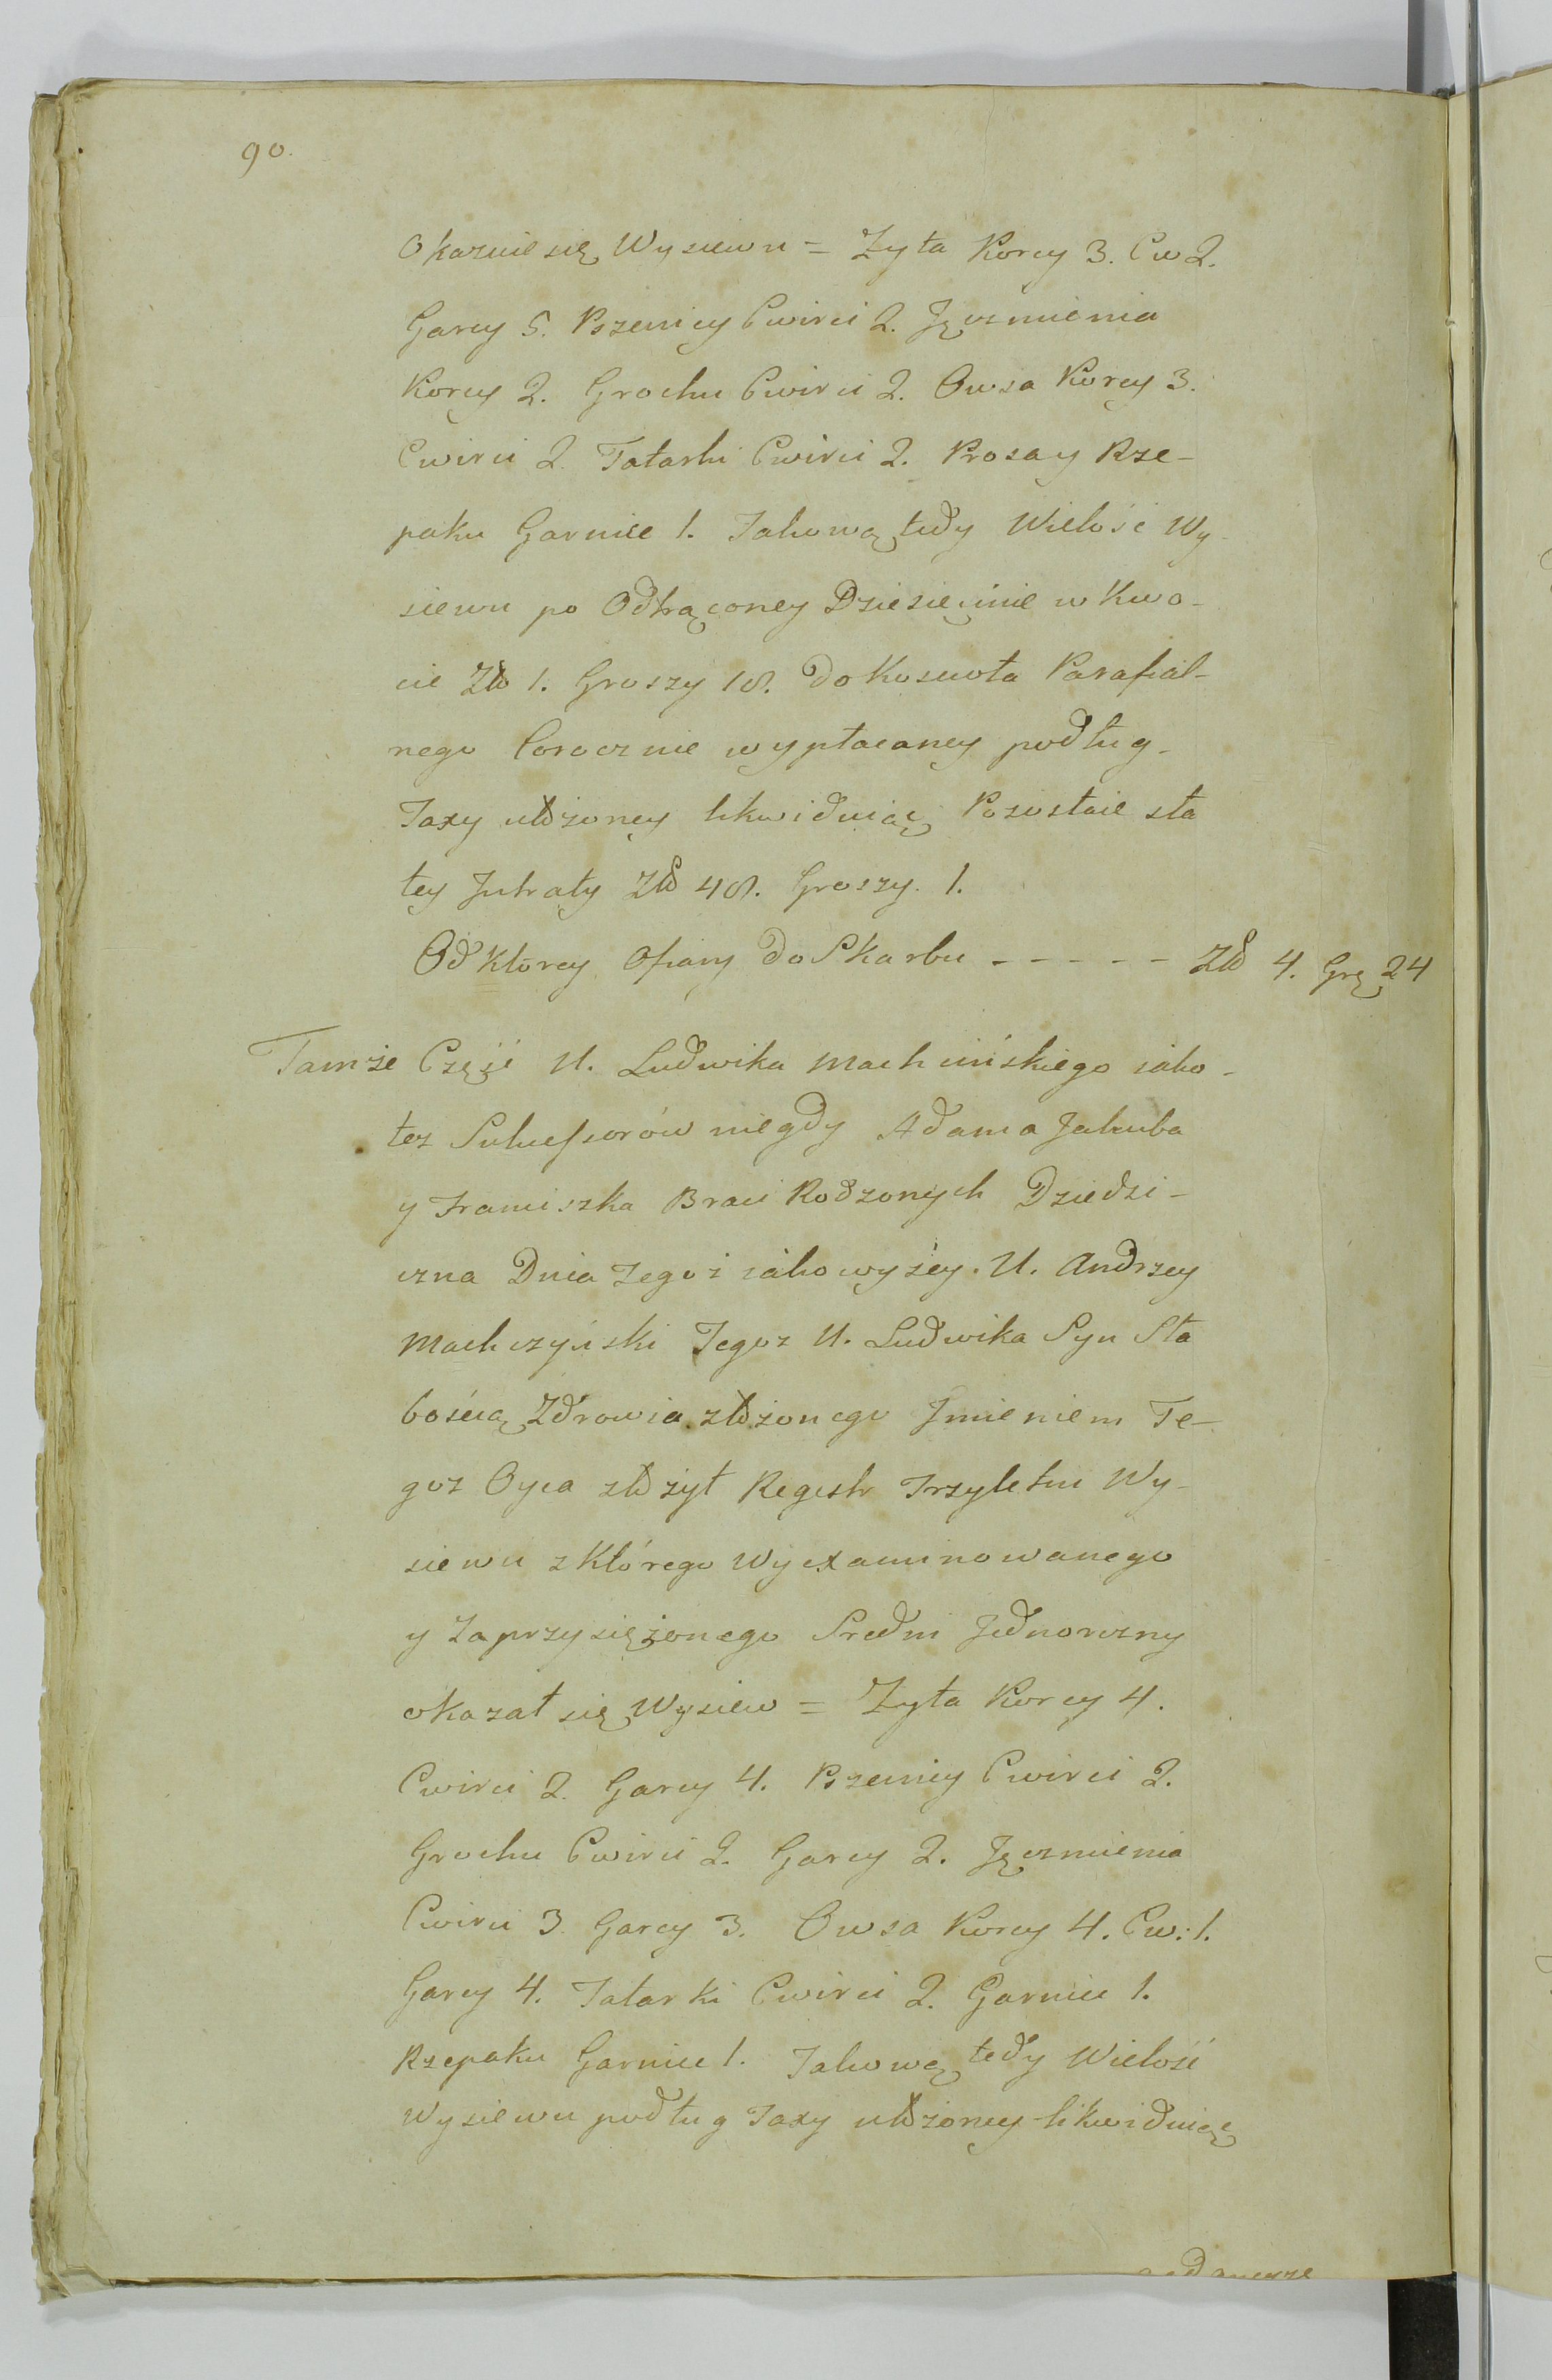 90.
Okazuie się Wysiewu = Zyta Korcy 3. Cw 2.
Garcy 5. Pszenicy Cwirci 2. Jęczmienia
Korcy 2. Grochu Cwirci 2. Owsa Korcy 3.
Cwirci 2. Tatarki Cwirci 2. Prosa y Rze-
paku Garniec 1. Jakową tedy Wielość Wy-
siewu po Odtrąconey Dziesięcinie w Kwo-
cie Zło 1. Groszy 18. do Koscioła Parafial-
nego Corocznie wypłacaney podług
Taxy ułożoney likwiduiąc Pozostaie sta
tey Jntraty Zło 48. Groszy. 1.
Od Którey Ofiary do Skarbu - - - - - Zło 4. Grz 24
Tamże Część U. Ludwika Machcińskiego iako-
tez Sukcessorów niegdy Adama Jakuba
y Franciszka Braci Rodzonych Dziedzi-
czna Dnia Tegoż iako wyżey. U. Andrzey
Machczyński Tegoz U. Ludwika Syn Sła
bością Zdrowia złożonego Jmieniem Te-
goz Oyca złożył Regestr Trzyletni Wy-
siewu z Którego Wyexaminowanego
y Zaprzysiężonego Sredni Jednoroczny
okazał się Wysiew = Zyta Korcy 4.
Cwirci 2. Garcy 4. Pszenicy Cwirci 2.
Grochu Cwirci 2. Garcy 2. Jęczmienia
Cwirci 3 Garcy 3. Owsa Korcy 4. Cw: 1.
Garcy 4. Tatarki Cwirci 2. Garniec 1.
Rzepaku Garniec 1. Jakową tedy Wielość
Wysiewu podług Taxy ułożoney likwiduiąc